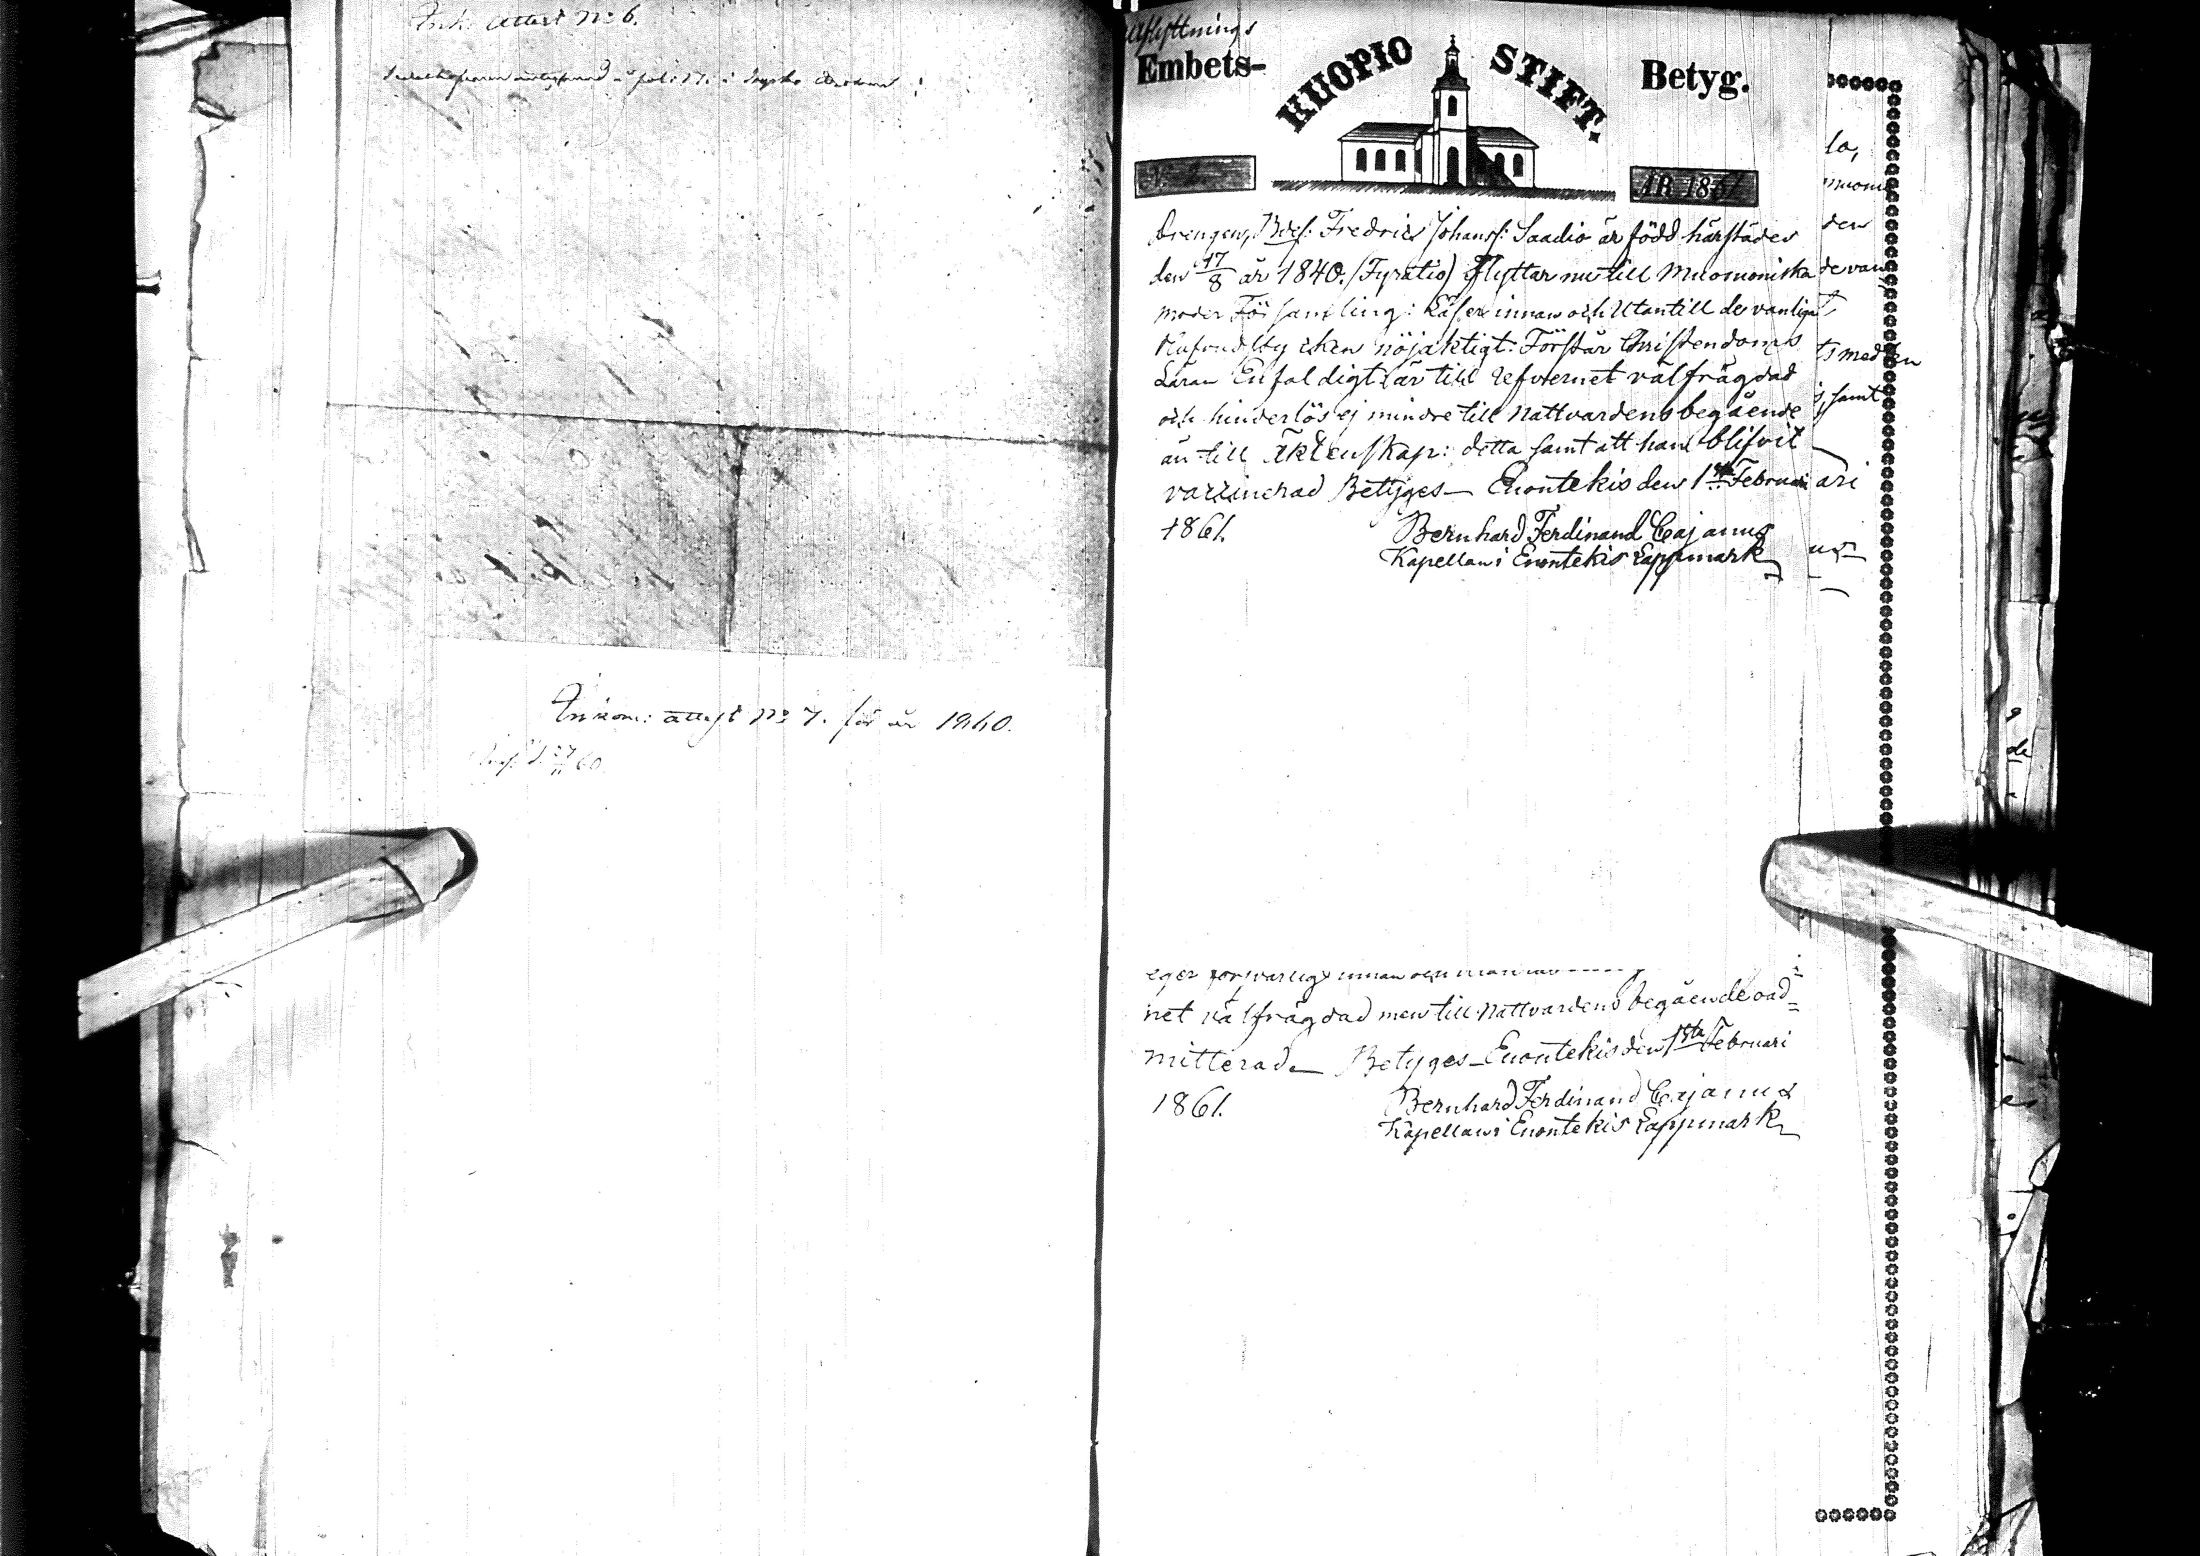 Ink: Attest No 6.
Inkom: attest No 7. för år 1860.
Afflyttnings
Embets- KUOPIO STIFT. Betyg.
No
ÅR 1861
Drengen, Bdes: Fredric Johanss: Saadio är född härstädes
den 17/8 år 1840. (Fyratio) Flyttar nu till Muonioniska
moder Församling: Läser innan och Utantill de vanliga
nöjaktigt: Förstår Christendoms
Läran Enfaldigt: är till Lefvernet välfrägdad
och hinderlös ej mindre till Nattvardens begående
än till Äktenskap: detta samt att han blifvit
vaccinerad Betyges— Enontekis den 1sta Februari
1861.
Bernhard Ferdinand Cajanus
Kapellan i Enontekis Lappmark
la,
den
de van
ts med
samt
ari
us
innan och
net välfrägdad men till Nattvardens begående oad=
mitterad— Betyges— Enontekis den 1sta Februari
1861.
Bernhard Ferdinand Cajanus
Kapellan i Enontekis Lappmark
de